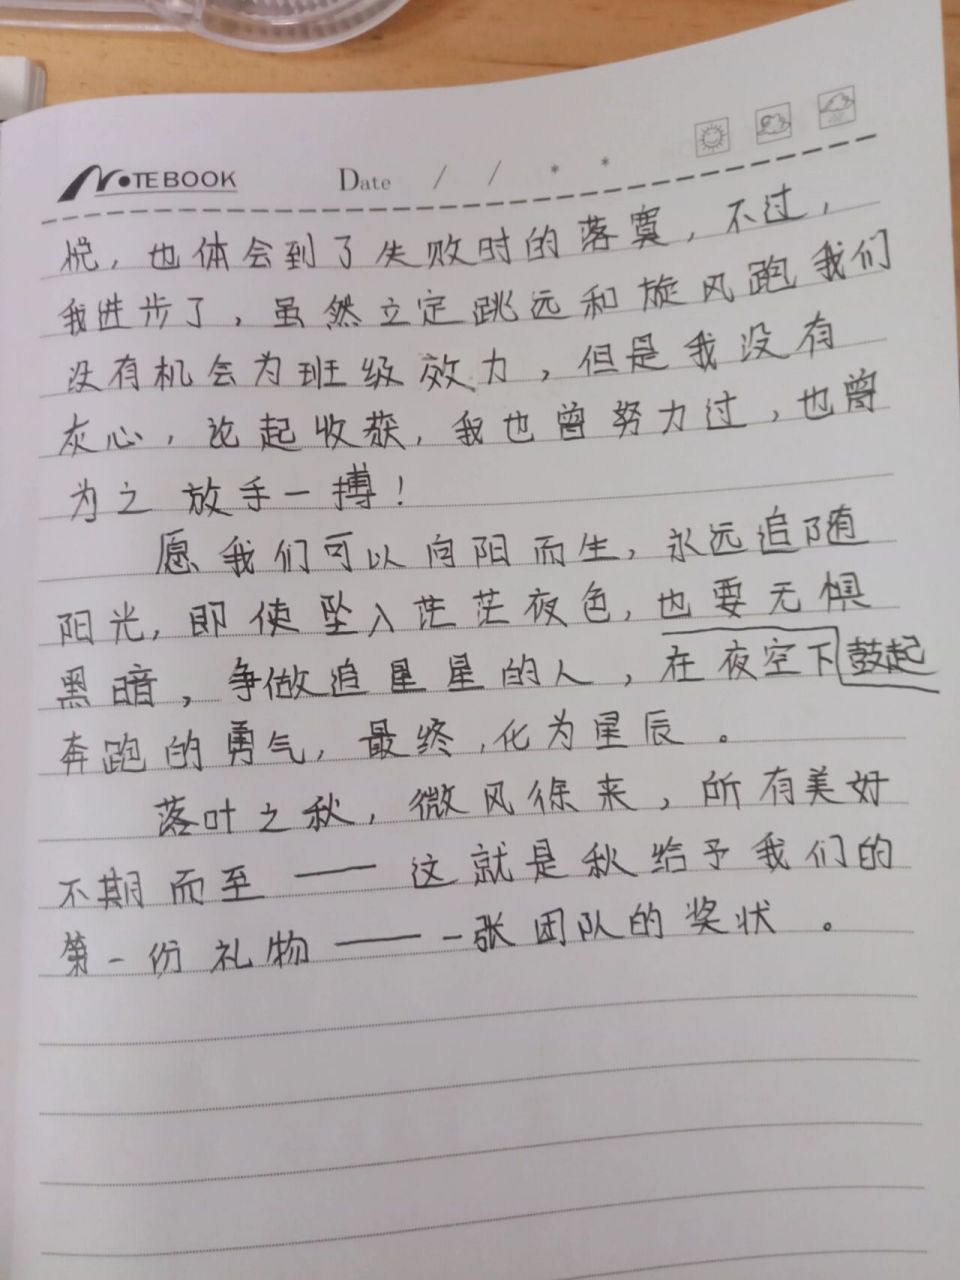 NOTEBOOK Date / / * *
悦，也体会到了失败时的落寞，不过，
我进步了，虽然立定跳远和旋风跑我们
没有机会为班级效力，但是我没有
灰心，论起收获，我也曾努力过，也曾
为之放手一搏！
愿我们可以向阳而生，永远追随
阳光，即使坠入茫茫夜色，也要无惧
黑暗，争做追星星的人，在夜空下鼓起
奔跑的勇气，最终，化为星辰。
落叶之秋，微风徐来，所有美好
不期而至——这就是秋给予我们的
第一份礼物——一张团队的奖状。